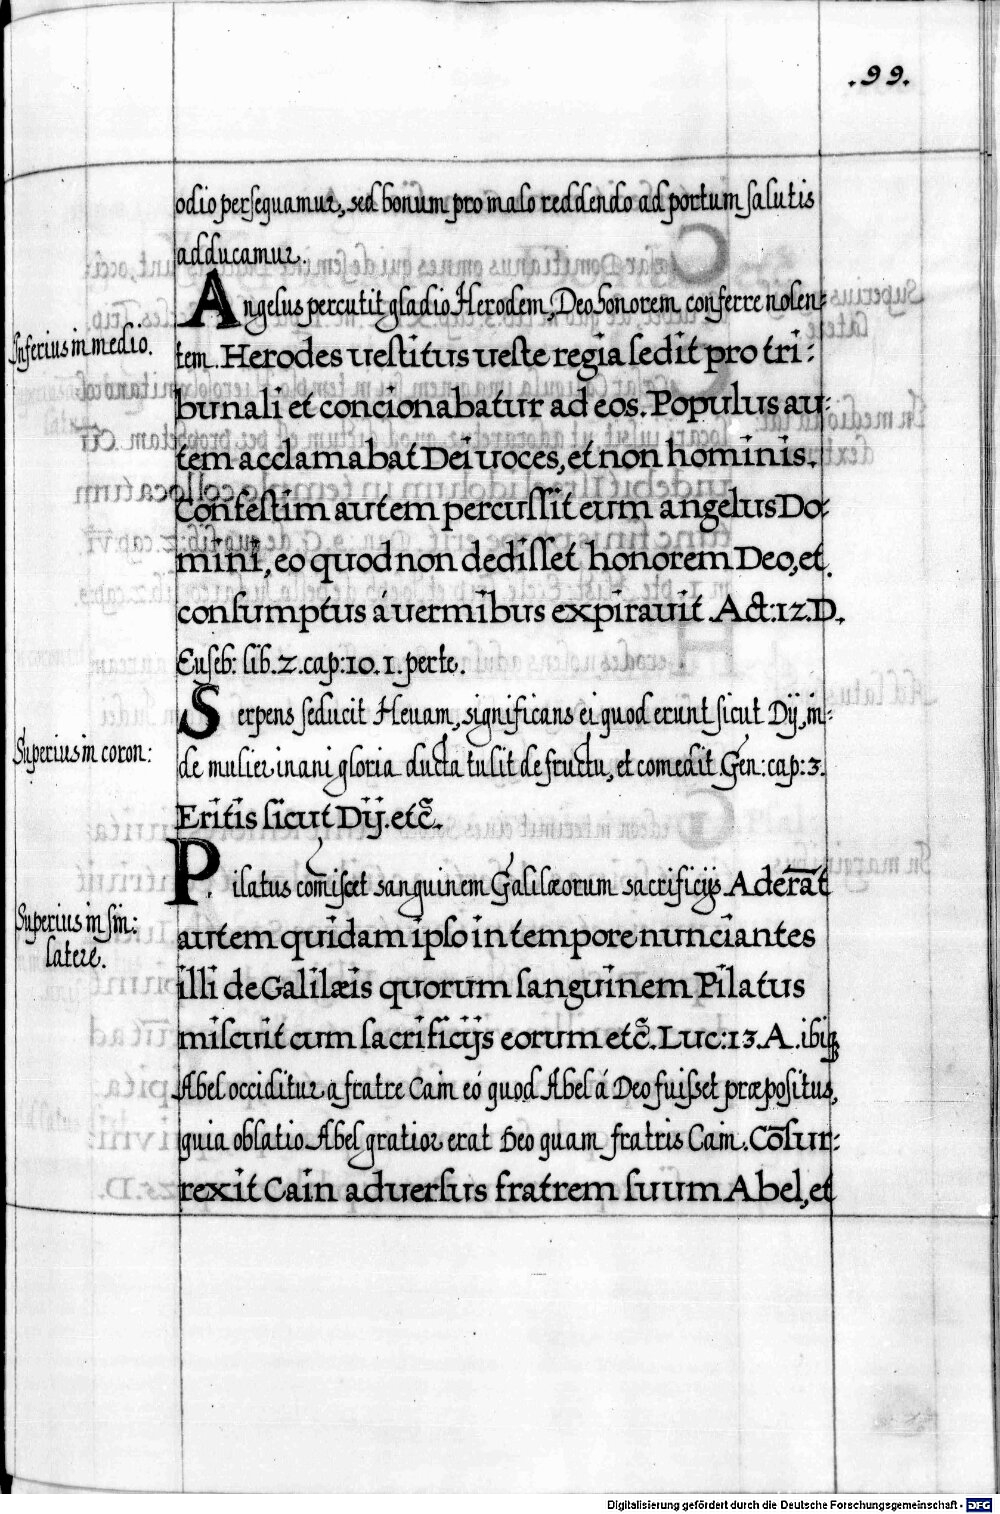 .99.
odio persequamur, sed bonum pro malo reddendo ad portum salutis
adducamur.
Angelus percutit gladio Herodem, Deo honorem conferre nolen:
Inferius in medio.
tem. Herodes uestitus ueste regia sedit pro tri:
bunali et concionabatur ad eos. Populus au:
tem acclamabat Dei uoces, et non hominis.
Confestim autem percussit eum angelus Do:
mini, eo quod non dedisset honorem Deo, et
consumptus á uermibus expirauit. Act: 12. D.
Euseb: lib. 2. cap: 10. 1. perte.
Serpens seducit Heuam, significans ei quod erunt sicut Dij, in:
Superius in coron:
de mulier inani gloria ducta tulit de fructu, et comedit Gen: cap: 3.
Eritis sicut Dij. etc̃.
Pilatus comiscet sanguinem Galilæorum sacrificijs Aderãt
Superius in sin:
latere.
autem quidam ipso in tempore nunciantes
illi de Galilæis quorum sanguinem Pilatus
miscuit cum sacrificijs eorum etc̃. Luc: 13. A. ibiq3
Abel occiditur a fratre Cain eó quod Abel á Deo fuisset præpositus,
quia oblatio Abel gratior erat Deo quam fratris Cain. Cõsur:
rexit Cain aduersus fratrem suum Abel, et
Digitalisierung gefördert durch die Deutsche Forschungsgemeinschaft - DFG